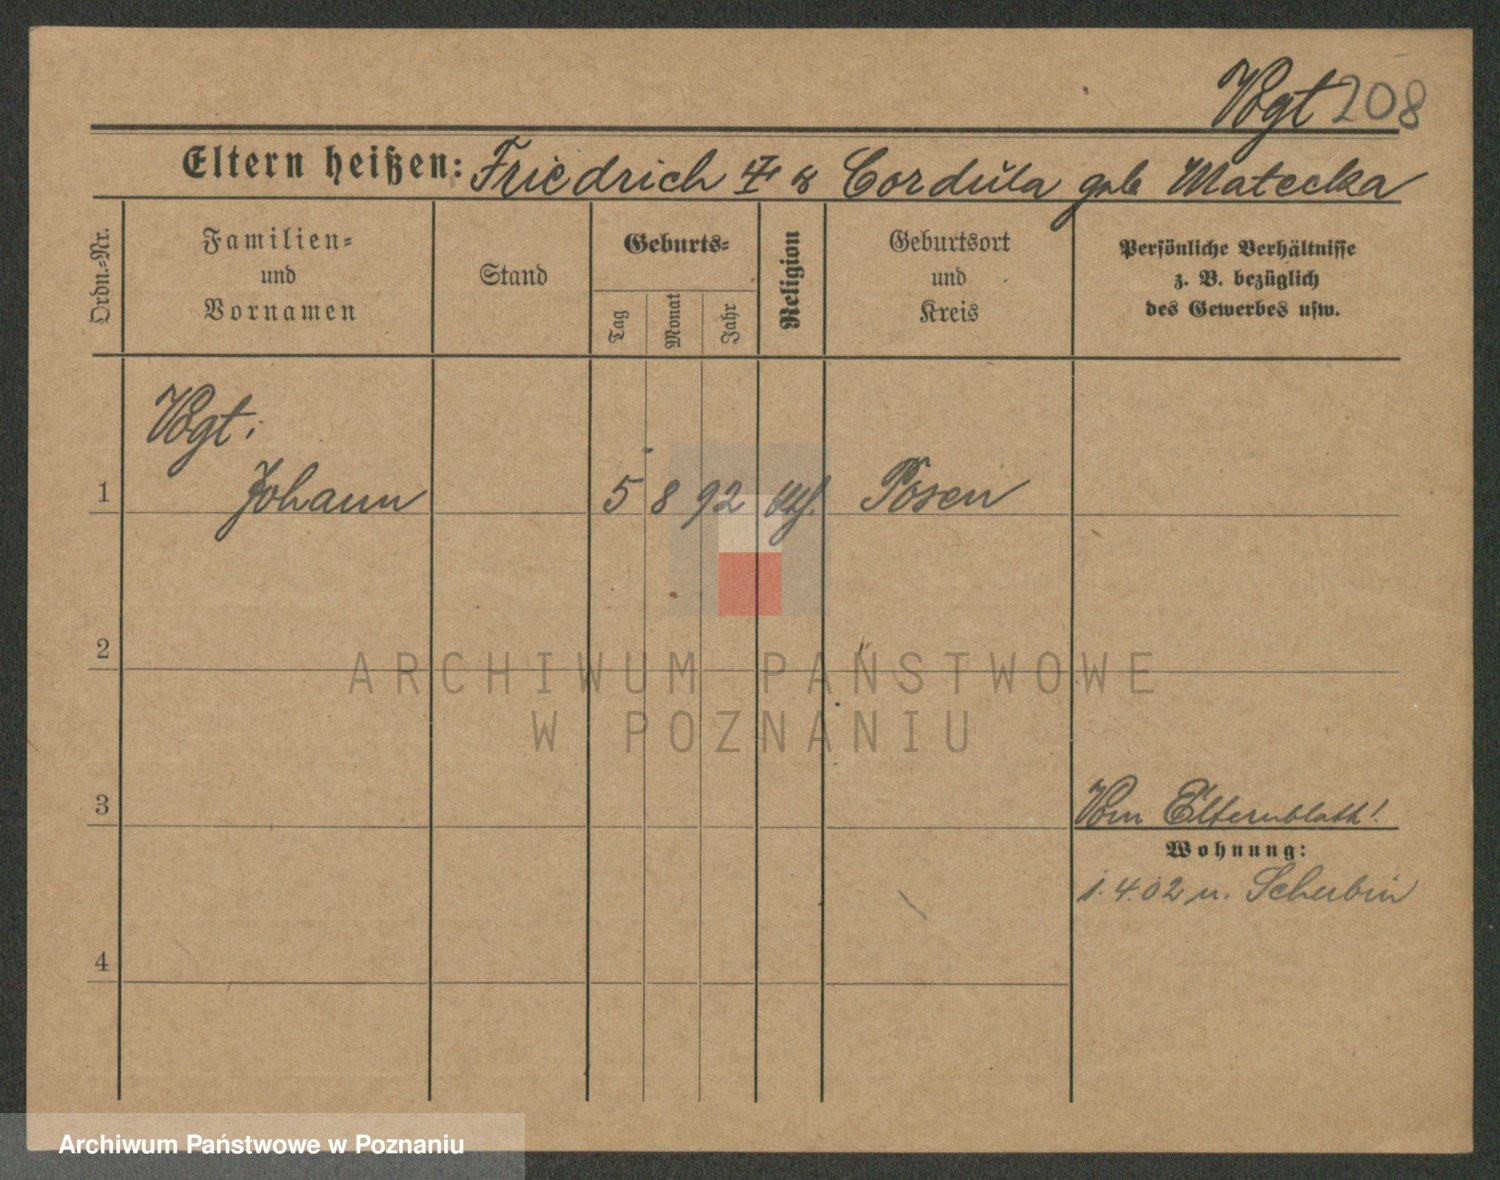 Vogt 208
Eltern heißen: Friedrich & Cordŭla geb Matecka
Ordn.-Nr.
Familien-
und
Vornamen
Stand
Geburts-
Tag
Monat
Jahr
Religion
Geburtsort
und
Kreis
Persönliche Verhältnisse
z. B. bezüglich
des Gewerbes usw.
Vogt.
1 Johann 5 8 92 Posen
2
3
Vom Elternblatt!
Wohnung:
1.4.02 n. Schubin
4
ARCHIWUM PAŃSTWOWE
W POZNANIU
Archiwum Państwowe w Poznaniu